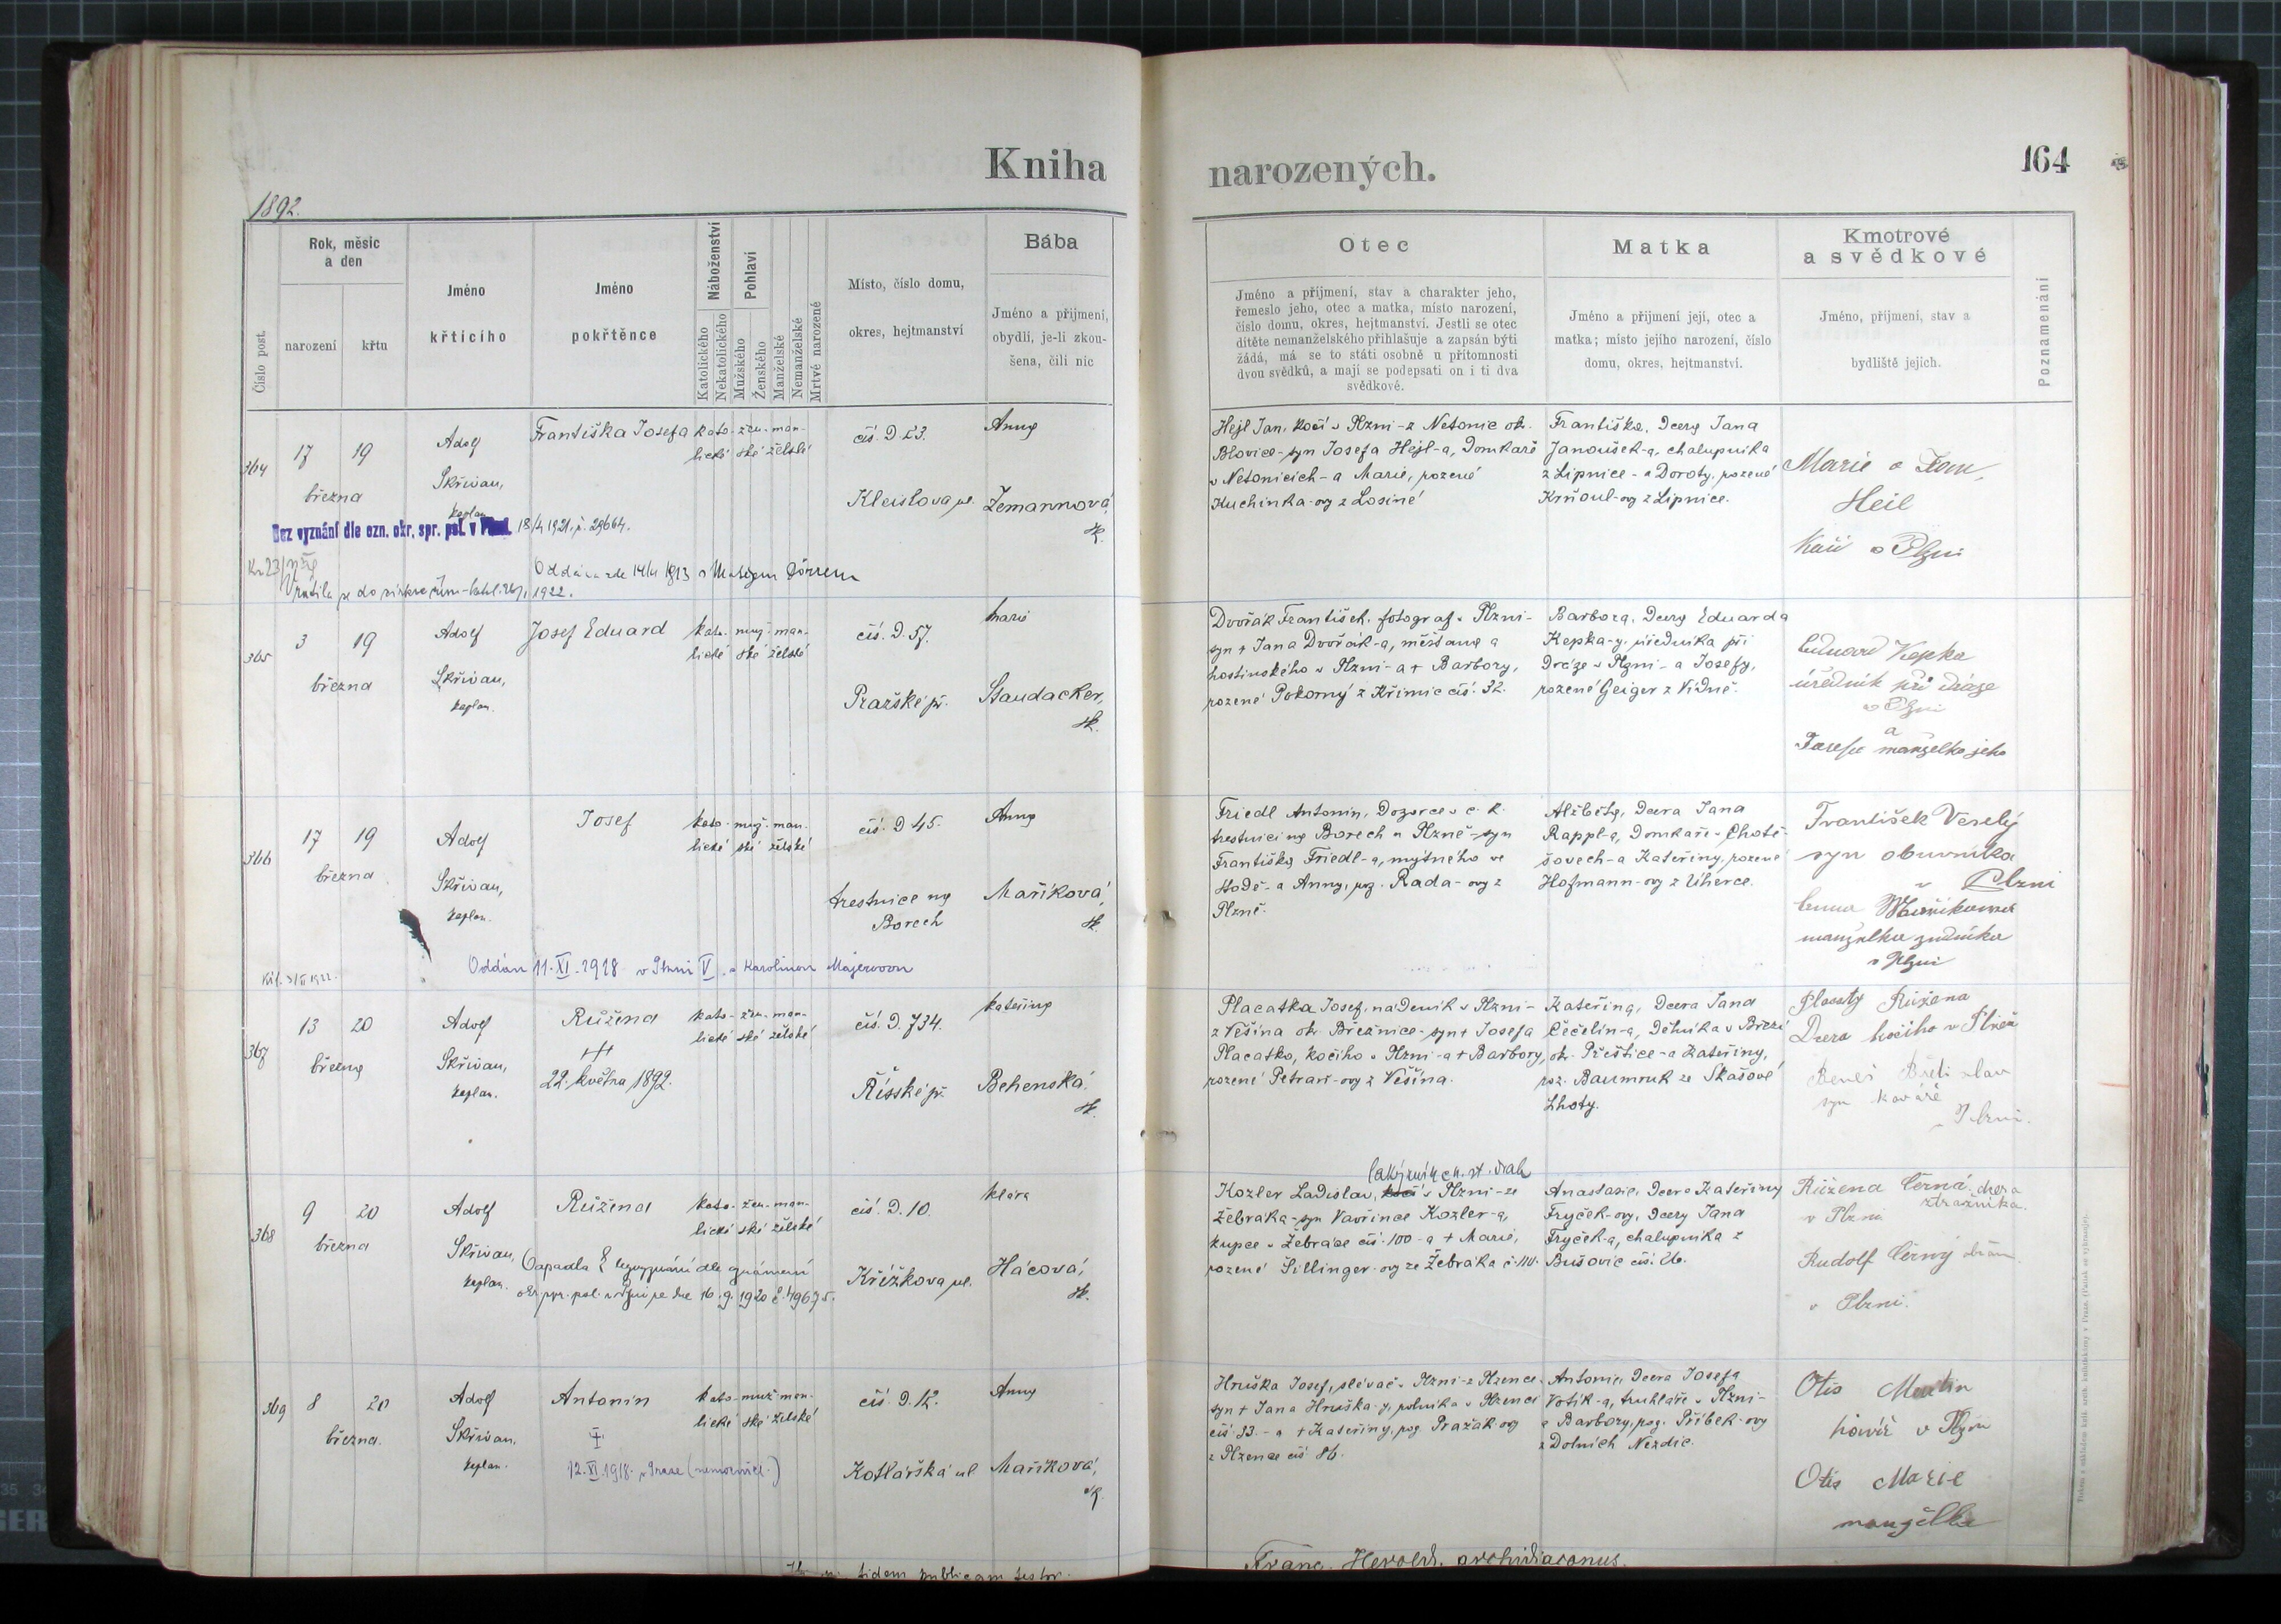 Kniha
narozených.
164
1892.
Číslo post.
Rok, měsíc
a den
narození
křtu
Jméno
křtícího
Jméno
pokřtěnce
Náboženství
Katolického
Nekatolického
Pohlaví
Mužského
Ženského
Manželské
Nemanželské
Mrtvě narozené
Místo, číslo domu,
okres, hejtmanství
Bába
Jméno a příjmení,
obydlí, je-li zkou-
šena, čili nic
Otec
Jméno a příjmení, stav a charakter jeho,
řemeslo jeho, otec a matka, místo narození,
číslo domu, okres, hejtmanství. Jestli se otec
dítěte nemanželského přihlašuje a zapsán býti
žádá, má se to státi osobně u přítomnosti
dvou svědků, a mají se podepsati on i ti dva
svědkové.
Matka
Jméno a příjmení její, otec a
matka; místo jejího narození, číslo
domu, okres, hejtmanství.
Kmotrové
a svědkové
Jméno, příjmení, stav a
bydliště jejich.
Poznamenání
364
17 19
března
Adolf
Skřivan,
kaplan
Františka Josefa
kato- žen- man-
lické ské želské
čís. D. 23.
Kleistova ul.
Anna
Žemannová,
zk.
Bez vyznání dle ozn. okr. spr. pol. v 18/4 1921. č. 29664.
Oddána zde 14/4 1913 s
1922.
Hejl Jan, kočí v Plzni - z Netonic ok.
Blovice - syn Josefa Hejl-a, domkaře
v Netonicích - a Marie, rozené
Kuchinka-ovy z Losiné
Františka, dcera Jana
Janoušek-a, chalupníka
z Lipnice - a Doroty, rozené
Krňoul-ovy z Lipnice.
Marie a Jan
Heil
Kočí v Plzni
365
3 19
března
Adolf
Skřivan,
kaplan.
Josef Eduard
kato- muž- man-
lické ské želské
čís. D. 57.
Pražské př.
Marie
Staudacher,
zk.
Dvořák František, fotograf v Plzni -
syn + Jana Dvořák-a, měšťana a
hostinského v Plzni - a + Barbory,
rozené Pokorný z Křimic čís. 32.
Barbora, dcera Eduarda
Kepka-y, úředníka při
dráze v Plzni - a Josefy,
rozené Geiger z Vídně.
Eduard Kepka
úředník při dráze
v Plzni
a
Josefa manželka jeho
366
17 19
března
Adolf
Skřivan,
kaplan.
Josef
kato- muž- man-
lické ské želské
čís. D 45.
trestnice na
Borech
Anna
Maříková,
zk.
Oddán 11. XI. 1918 v Plzni V. s Karolinou Majerovou
Friedl Antonín, dozorce v c. k.
trestnici na Borech u Plzně - syn
Františka Friedl-a, mýtného ve
Stodě - a Anny, roz. Rada-ovy z
Plzně.
Alžběta, dcera Jana
Rappl-a, domkaře v Chotě-
šovech - a Kateřiny, rozené
Hofmann-ovy z Úherce.
František Veselý
syn obuvníka
v Plzni
Anna Maříková
manželka zedníka
v Plzni
367
13 20
března
Adolf
Skřivan,
kaplan.
Růžena
22. května 1892.
kato- žen- man-
lické ské želské
čís. D. 734.
Říšské př.
Kateřina
Behenská,
zk.
Placatka Josef, nádeník v Plzni -
z Vešína ok. Březnice - syn + Josefa
Placatka, kočího v Plzni - a + Barbory,
rozené Petrař-ovy z Vešína.
Kateřina, dcera Jana
Čečelín-a, dělníka v Březí
ok. Přeštice - a Kateřiny,
roz. Baumruk ze Skašové
Lhoty.
Růžena
Dcera kočího v Plzni
Beneš Břetislav
syn kováře
v Plzni.
368
9 20
března
Adolf
Skřivan,
kaplan.
Růžena
kato- žen- man-
lické ské želské
čís. D. 10.
Křížkova ul.
Klára
Hácová,
zk.
dle
okr. spr. pol. v Plzni ze dne 16. 9. 1920 č. 49675.
st. drah
Kozler Ladislav, kočí v Plzni - ze
Žebráka - syn Vavřince Kozler-a,
kupce v Žebráce čís. 100 - a + Marie,
rozené Sillinger-ovy ze Žebráka č. 110.
Anastasie, dcera Kateřiny
Fryček-ovy, dcery Jana
Fryček-a, chalupníka z
Bušovic čís. 26.
Růžena Černá, dcera
strážníka
v Plzni
Rudolf Černý
v Plzni.
369
8 20
března.
Adolf
Skřivan,
kaplan.
Antonín
12. XI. 1918 v Praze
kato- muž- man-
lické ské želské
čís. D. 12.
Kotlářská ul.
Anna
Maříková,
zk.
Hruška Josef, slévač v Plzni - z Plzence
syn + Jana Hruška-y, rolníka v Plzenci
čís. 33. - a + Kateřiny, roz. Pražák-ovy
z Plzence čís. 86.
Antonie, dcera Josefa
Votík-a, truhláře v Plzni -
a Barbory, roz. Příbek-ovy
z Dolních Nezdic.
Otis Martin
v Plzni
Otis Marie
manželka
fidem publicam testor.
Franc. Herold, archidiaconus.